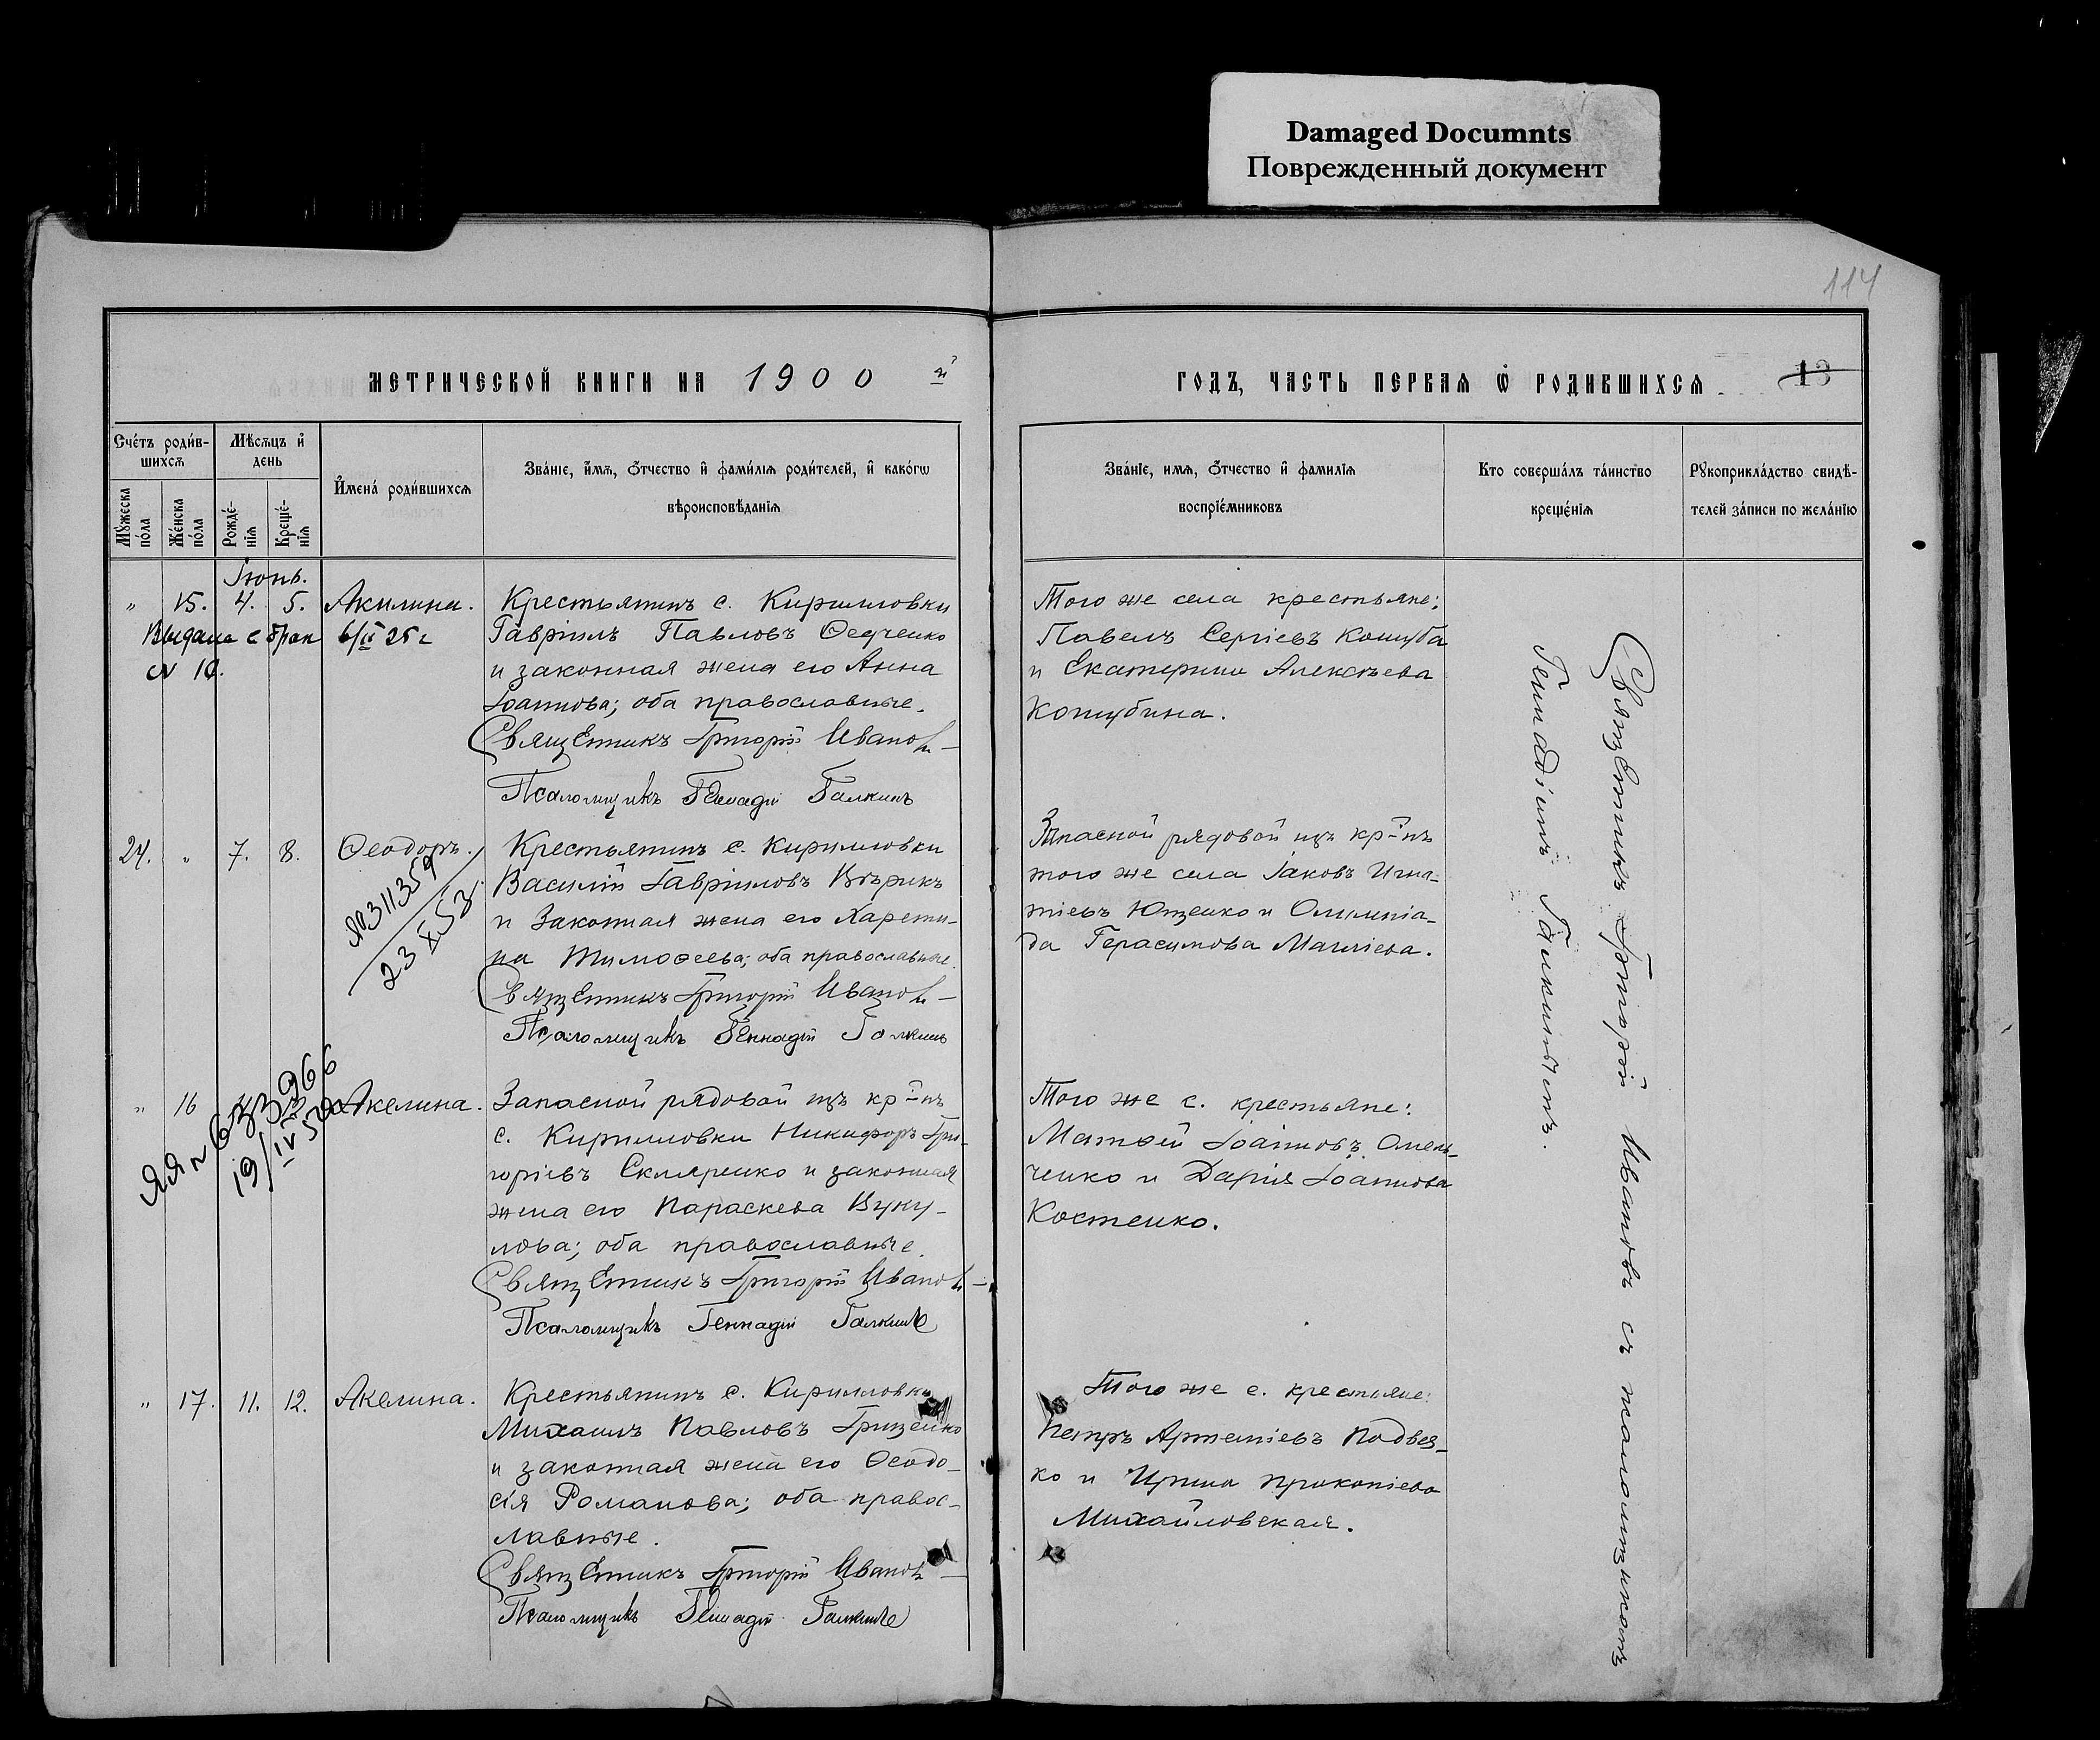 Damaged Documnts
Поврежденный документ
114
МЕТРИЧЕСКОЙ КНИГИ НА 1900 й
ГОДЪ, ЧАСТЬ ПЕРВАЯ Ѡ РОДИВШИХСЯ
13
Счетъ родив-
шихся
Мѣсяцъ и
день
Мꙋжеска
пола
Женска
пола
Рожде-
нія
Креще-
нія
Имена родившихся
Званіе, имя, отчество и фамилія родителей, и какогѡ
вѣроисповѣданія
Званіе, имя, отчество и фамилія
воспріемниковъ
Кто совершалъ таинство
крещенія
Рꙋкоприкладство свидѣ-
телей записи по желанію
Іюнь.
" 15. 4. 5. Акилина.
Выдана с брак 6/II 25 г
N 16.
Крестьянинъ с. Кирилловки
Гавріилъ Павловъ Ѳедченко
и законная жена его Анна
Іоаннова; оба православные.
Священникъ Григорій Ивановъ
Псаломщикъ Геннадій Галкинъ
Того же села крестьяне:
Павелъ Сергіевъ Кошуба
и Екатерина Алексѣева
Кошубина.
24. " 7. 8. Ѳеодоръ.
ЯЮ 311359
23 X 53
Крестьянинъ с. Кирилловки
Василій Гавріиловъ Вѣрикъ
и законная жена его Харети-
на Тимоѳеева; оба православные.
Священникъ Григорій Ивановъ
Псаломщикъ Геннадій Галкинъ
Запасной рядовой изъ кр-нъ
того же села Іаковъ Игна-
тіевъ Ющенко и Олимпіа-
да Герасимова
" 16 Акелина.
ЯЯ N 633966
19/IV
Запасной рядовой изъ кр-нъ
с. Кирилловки Никифоръ Гри-
горіевъ Скляренко и законная
жена его Параскева Вуку-
лова; оба православные.
Священникъ Григорій Ивановъ
Псаломщикъ Геннадій Галкинъ
Того же с. крестьяне:
Матѳей Іоанновъ Омель-
ченко и Дарія Іоаннова
Костенко.
" 17. 11. 12. Акелина.
Крестьянинъ с. Кирилловки
Михаилъ Павловъ Гриценко
и законная жена его Ѳеодо-
сія Романова; оба правос-
лавные.
Священникъ Григорій Ивановъ
Псаломщикъ Геннадій Галкинъ
Того же с. крестьяне:
Петръ Артеміевъ Подвез-
ко и Ирина Прокопіева
Михайловская.
Священникъ Григорій Ивановъ съ псаломщикомъ
Геннадіемъ Галкинымъ.